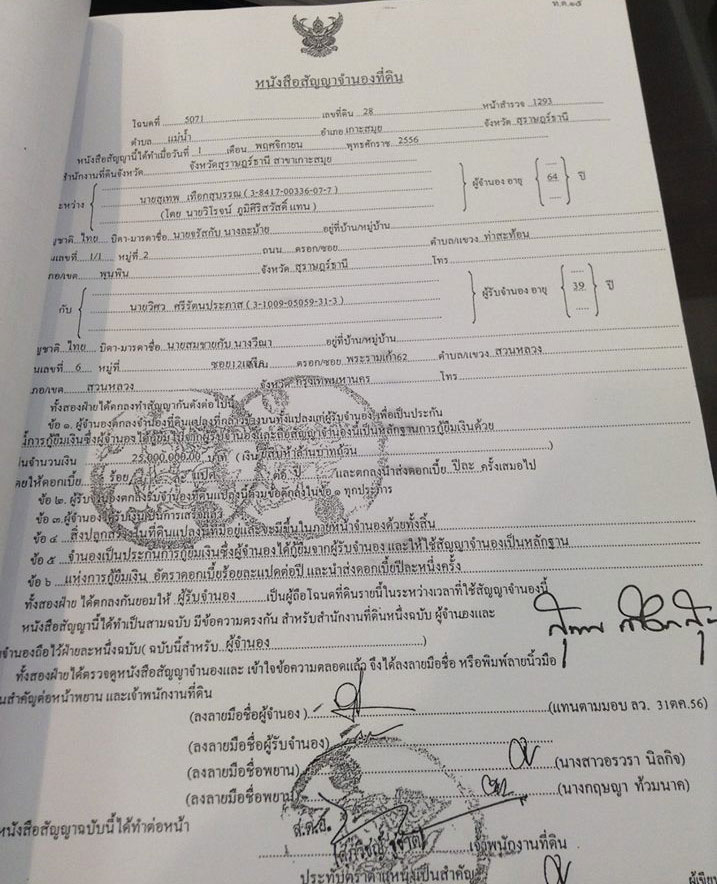 ท.ด.๑๕
หนังสือสัญญาจำนองที่ดิน
โฉนดที่ 5071 เลขที่ดิน 28 หน้าสำรวจ 1293
ตำบล แม่น้ำ อำเภอ เกาะสมุย จังหวัด สุราษฎร์ธานี
หนังสือสัญญานี้ได้ทำเมื่อวันที่ 1 เดือน พฤศจิกายน พุทธศักราช 2556
สำนักงานที่ดินจังหวัด จังหวัดสุราษฎร์ธานี สาขาเกาะสมุย
ะหว่าง นายสุเทพ เทือกสุบรรณ ( 3-8417-00336-07-7 ) ผู้จำนอง อายุ 64 ปี
(โดย นายวิโรจน์ ภูมิศิริสวัสดิ์ แทน )
ญชาติ ไทย บิดา-มารดาชื่อ นายจรัสกับ นางละม้าย อยู่ที่บ้าน/หมู่บ้าน
นเลขที่ 1/1 หมู่ที่ 2 ถนน ตรอก/ซอย ตำบล/แขวง ท่าสะท้อน
ภอ/เขต พุนพิน จังหวัด สุราษฎร์ธานี โทร
กับ นายวิศว ศรีรัตนประภาส ( 3-1009-05059-31-3 ) ผู้รับจำนอง อายุ 39 ปี
ญชาติ ไทย บิดา-มารดาชื่อ นายสมชายกับ นางวีณา อยู่ที่บ้าน/หมู่บ้าน
นเลขที่ 6 หมู่ที่ ตรอก/ซอย พระรามเก้า62 ตำบล/แขวง สวนหลวง
ภอ/เขต สวนหลวง จังหวัด กรุงเทพมหานคร โทร
ทั้งสองฝ่ายได้ตกลงทำสัญญากันดังต่อไปนี้
ข้อ ๑. ผู้จำนองตกลงจำนองที่ดินแปลงที่กล่าวข้างบนทั้งแปลงแก่ผู้รับจำนอง เพื่อเป็นประกัน
การกู้ยืมเงินซึ่งผู้จำนองได้กู้ยืมไปจากผู้รับจำนองและถือสัญญาจำนองนี้เป็นหลักฐานการกู้ยืมเงินด้วย
นจำนวนเงิน 25,000,000.00 บาท ( เงิน ยี่สิบห้าล้านบาทถ้วน )
ดยให้ดอกเบี้ย ร้อยละ แปด ต่อ ปี และตกลงนำส่งดอกเบี้ย ปีละ ครั้งเสมอไป
ข้อ ๒. ผู้รับจำนองตกลงรับจำนองที่ดินแปลงนี้ตามข้อตกลงในข้อ ๑ ทุกประการ
ข้อ ๓. ผู้จำนองได้รับเงินเป็นการเสร็จแล้ว
ข้อ ๔ สิ่งปลูกสร้างในที่ดินแปลงนี้ที่มีอยู่และจะมีขึ้นในภายหน้าจำนองด้วยทั้งสิ้น
ข้อ ๕ จำนองเป็นประกันการกู้ยืมเงินซึ่งผู้จำนองได้กู้ยืมจากผู้รับจำนอง และให้ใช้สัญญาจำนองเป็นหลักฐาน
ข้อ ๖ แห่งการกู้ยืมเงิน อัตราดอกเบี้ยร้อยละแปดต่อปี และนำส่งดอกเบี้ยปีละหนึ่งครั้ง
ทั้งสองฝ่าย ได้ตกลงกันยอมให้ ผู้รับจำนอง เป็นผู้ถือโฉนดที่ดินรายนี้ในระหว่างเวลาที่ใช้สัญญาจำนองนี้
หนังสือสัญญานี้ได้ทำเป็นสามฉบับ มีข้อความตรงกัน สำหรับสำนักงานที่ดินหนึ่งฉบับ ผู้จำนองและ
จำนองถือไว้ฝ่ายละหนึ่งฉบับ( ฉบับนี้สำหรับ ผู้จำนอง )
ทั้งสองฝ่ายได้ตรวจดูหนังสือสัญญาจำนองและ เข้าใจข้อความตลอดแล้ว จึงได้ลงลายมือชื่อ หรือพิมพ์ลายนิ้วมือ
นสำคัญต่อหน้าพยาน และเจ้าพนักงานที่ดิน
(ลงลายมือชื่อผู้จำนอง ) (แทนตามมอบ ลว. 31ตค.56)
(ลงลายมือชื่อผู้รับจำนอง)
(ลงลายมือชื่อพยาน) (นางสาวอรวรา นิลกิจ)
(ลงลายมือชื่อพยาน) (นางกฤษญา ท้วมนาค)
หนังสือสัญญาฉบับนี้ได้ทำต่อหน้า
เจ้าพนักงานที่ดิน
ประทับตราตำแหน่งเป็นสำคัญ
ผู้เขียน